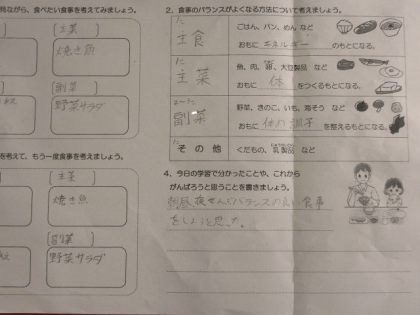 ながら、食べたい食事を考えてみましょう。
[主菜]
焼き魚
[副菜]
野菜サラダ
を考えて、もう一度食事を考えましょう。
[主菜]
焼き魚
[副菜]
野菜サラダ
2. 食事のバランスがよくなる方法について考えましょう。
主食
ごはん、パン、めん など
おもに エネルギー のもとになる。
主菜
魚、肉、卵、大豆製品 など
おもに 体 をつくるもとになる。
副菜
野菜、きのこ、いも、海そう など
おもに 体の調子 を整えるもとになる。
その他
くだもの、乳製品 など
4. 今日の学習で分かったことや、これから
がんばろうと思うことを書きましょう。
朝昼夜ぜんぶバランスの良い食事
をしようと思った。